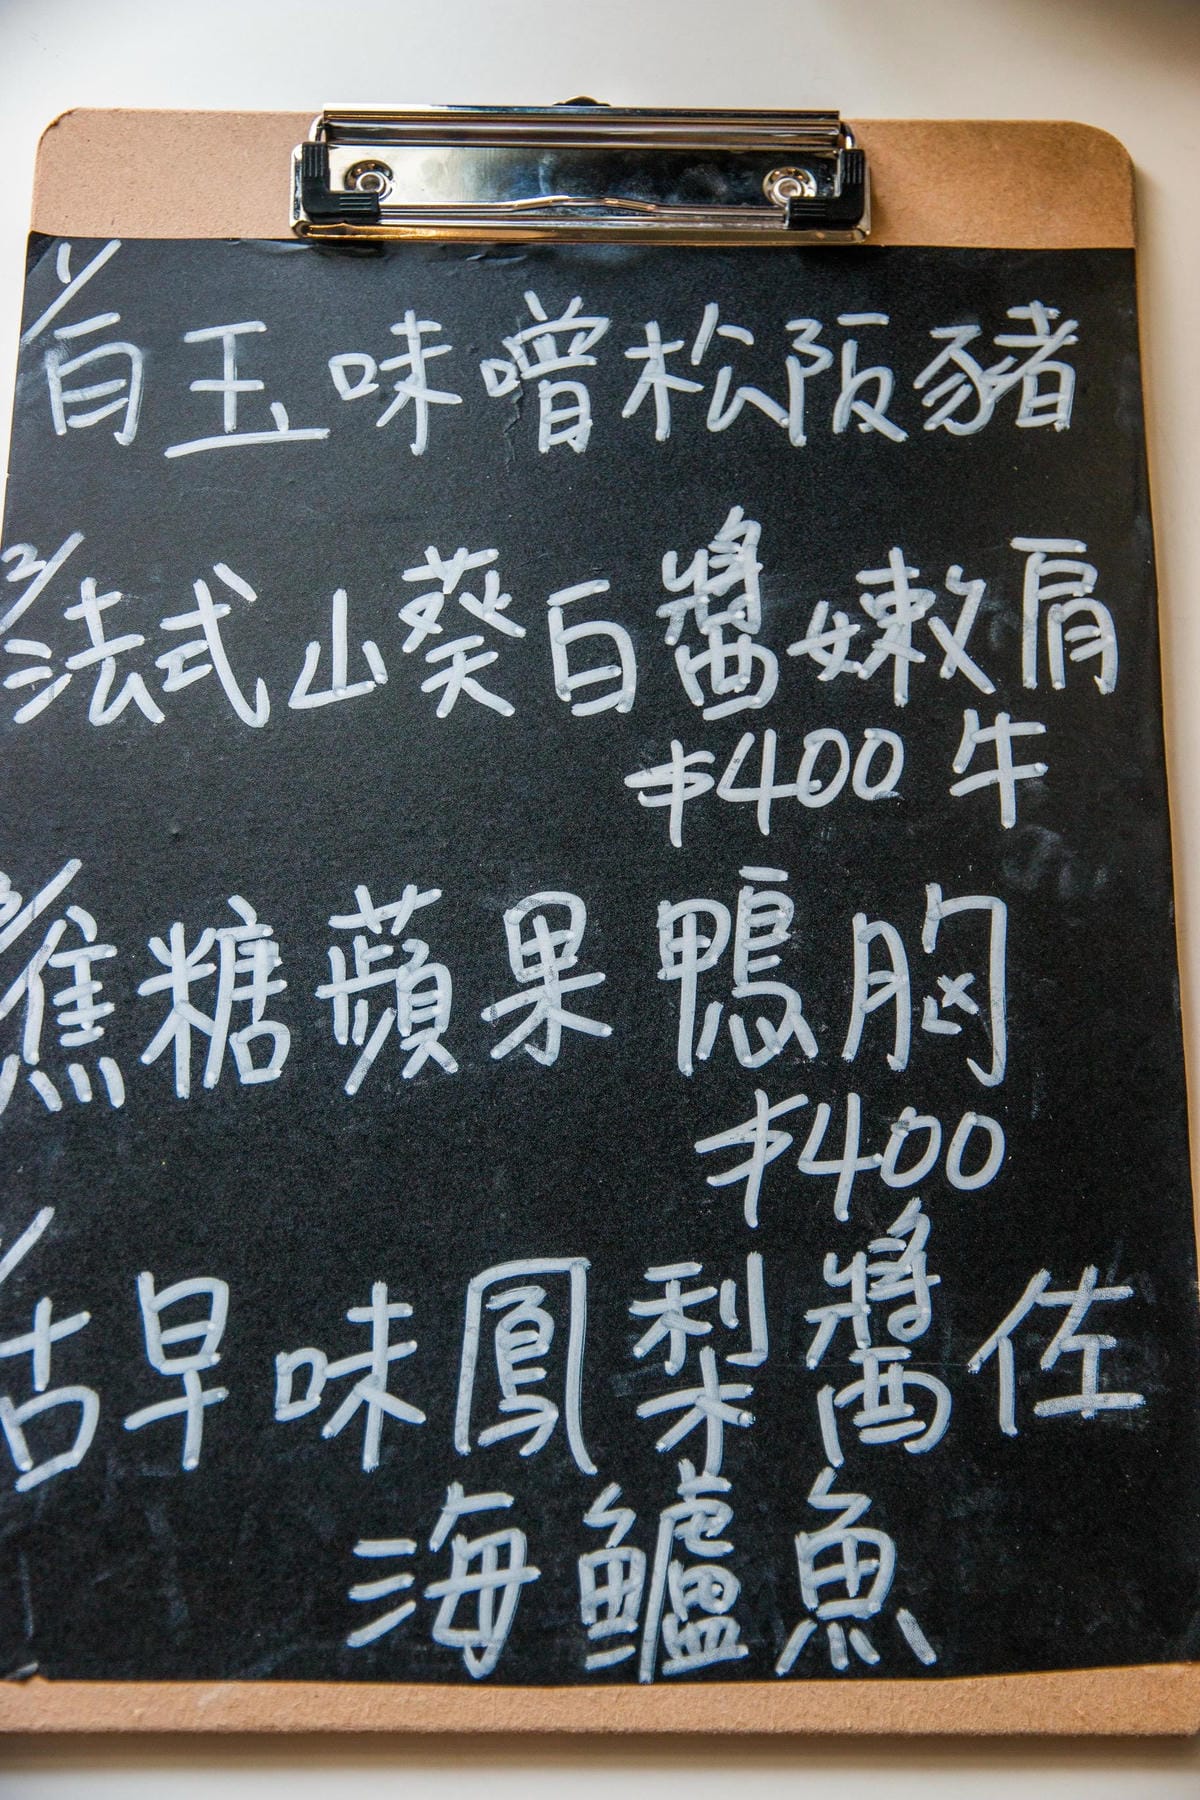 1/
白玉味噌松阪豬
2/
法式山葵白醬嫩肩
$400 牛
3/
焦糖蘋果鴨胸
$400
古早味鳳梨醬佐
海鱸魚